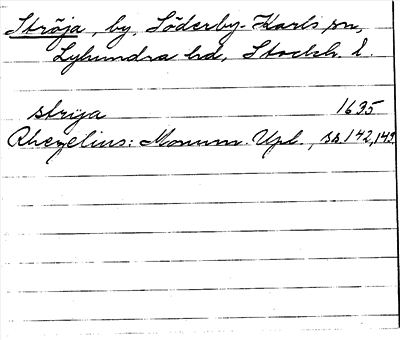 Ströja, by, Söderby-Karls sn,
Lyhundra hd, Stockh. l.
strija 1635
Rhezelius: Monum. Upl., ss. 142, 143